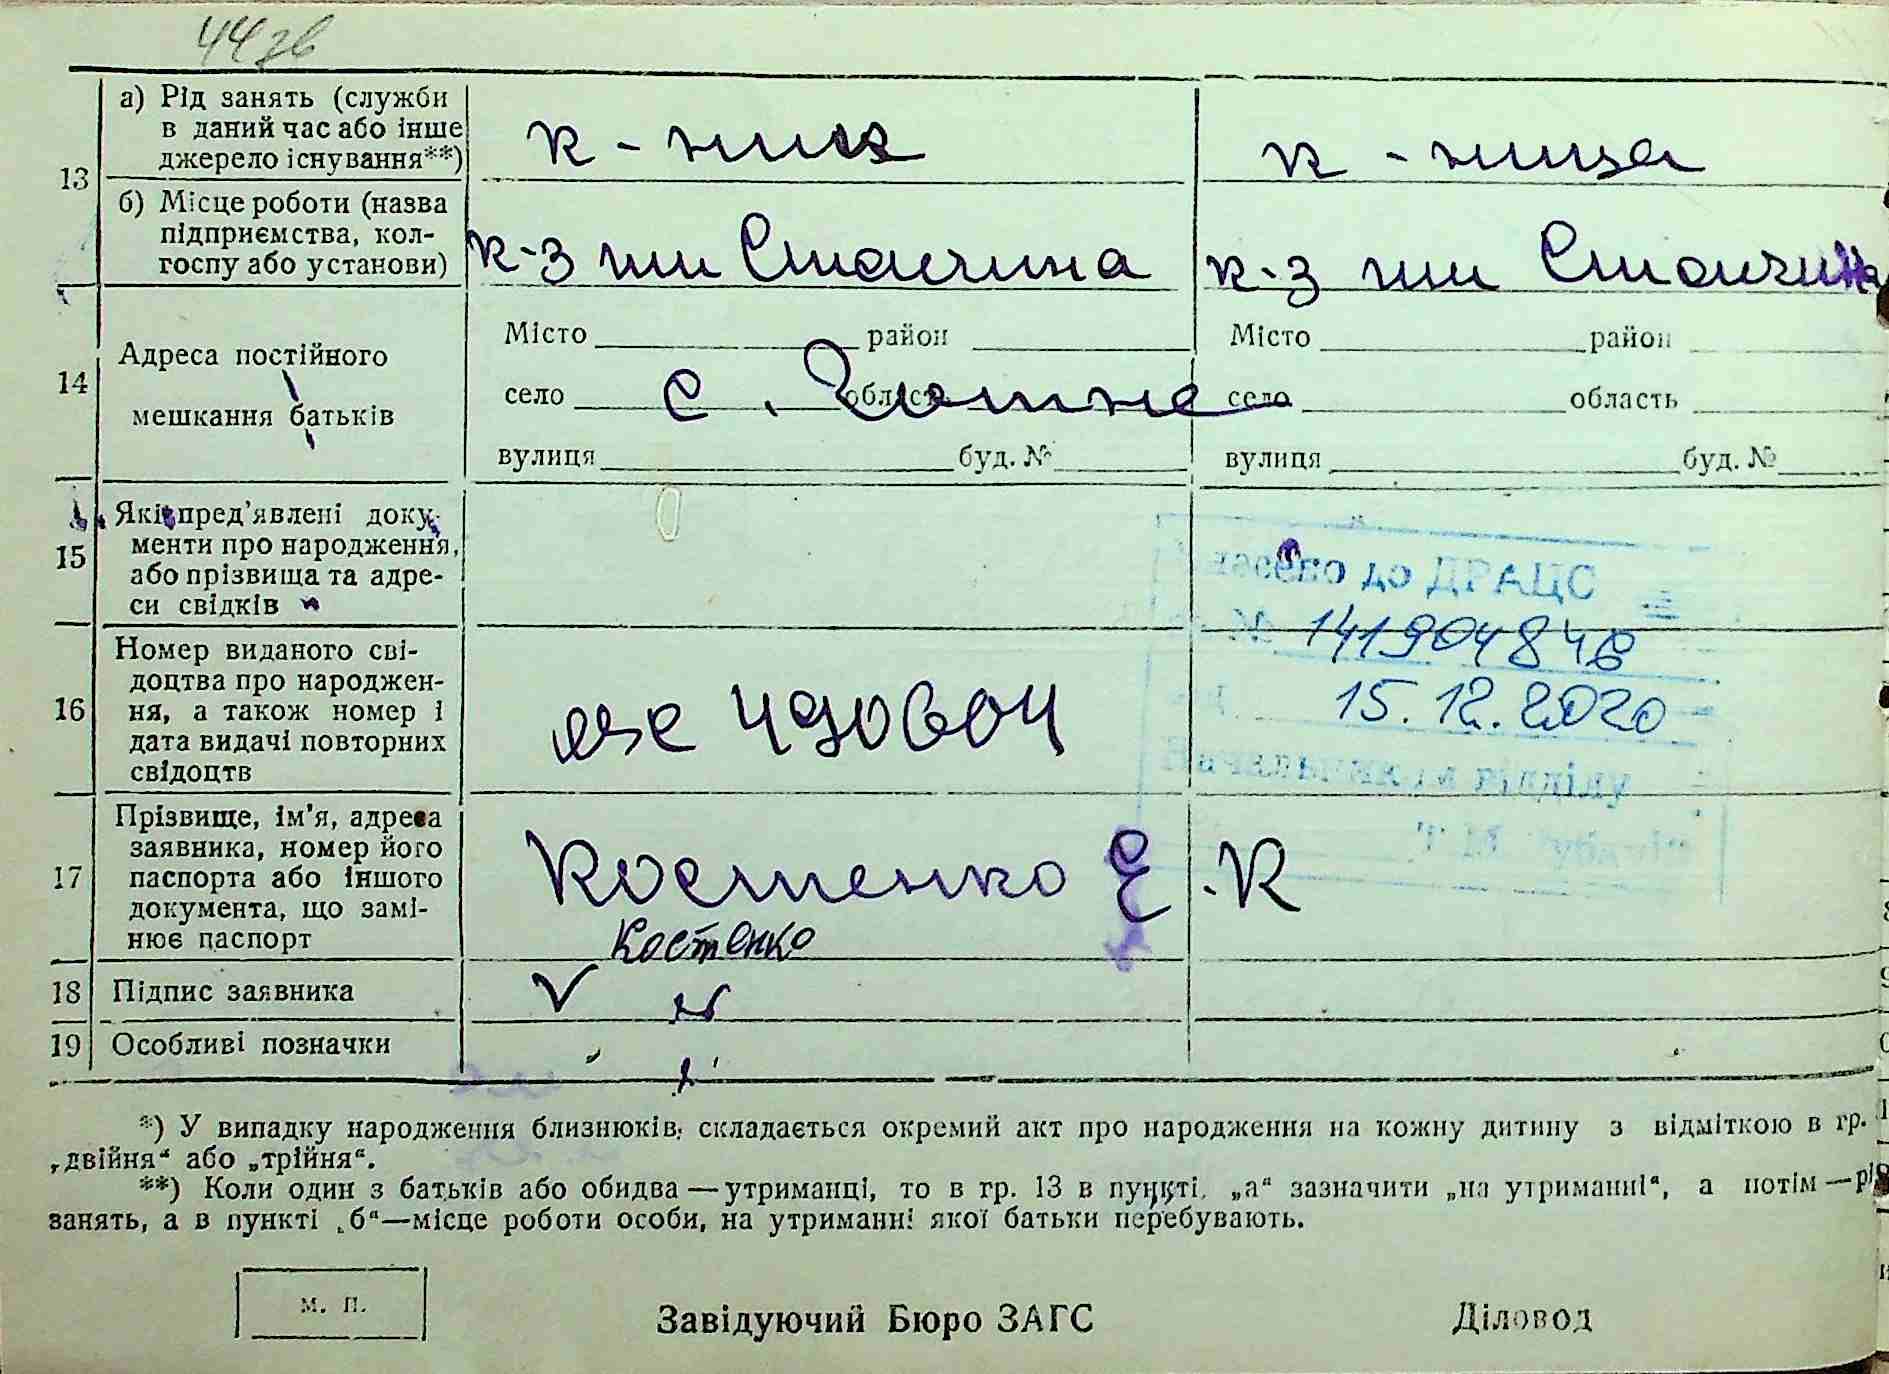 44 зв
13
а) Рід занять (служби
в даний час або інше
джерело існування**)
к-ник
к-ница
б) Місце роботи (назва
підприємства, кол-
госпу або установи)
к-з им Сталина
к-з им Сталина
14
Адреса постійного
мешкання батьків
Місто район
село область
вулиця буд. №
с.
Місто район
село область
вулиця буд. №
15
Які пред’явлені доку-
менти про народження,
або прізвища та адре-
си свідків
внесено до ДРАЦС
№ 141904846
15.12.2020
Начальник відділу
16
Номер виданого сві-
доцтва про народжен-
ня, а також номер і
дата видачі повторних
свідоцтв
490604
17
Прізвище, ім’я, адреса
заявника, номер його
паспорта або іншого
документа, що замі-
нює паспорт
Костенко Е.К
Костенко
18
Підпис заявника
19
Особливі позначки
*) У випадку народження близнюків, складається окремий акт про народження на кожну дитину з відміткою в гр.
„двійня“ або „трійня“.
**) Коли один з батьків або обидва—утриманці, то в гр. 13 в пункті „а“ зазначити „на утриманні“, а потім—рід
занять, а в пункті „б“—місце роботи особи, на утриманні якої батьки перебувають.
м. п.
Завідуючий Бюро ЗАГС
Діловод